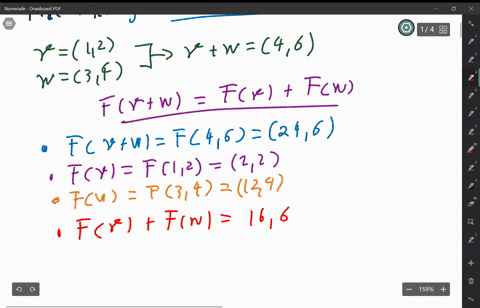 Numerade - Drawboard PDF
1 / 4
v = (1,2)
w = (3,4) ] → v + w = (4,6)
F(v+w) = F(v) + F(w)
• F(v+w) = F(4,6) = (24,6)
• F(v) = F(1,2) = (2,2)
• F(w) = F(3,4) = (12,4)
• F(v) + F(w) = 16,6
159%